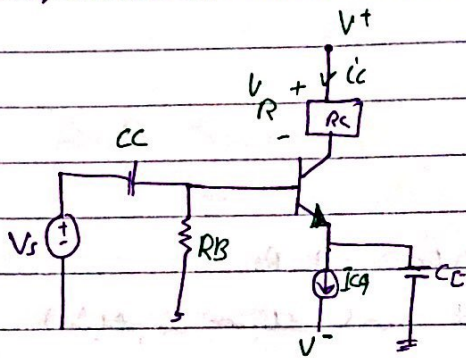 V+
V + ic
R
Rc
-
CC
Vs + -
RB
ICQ
CE
V-